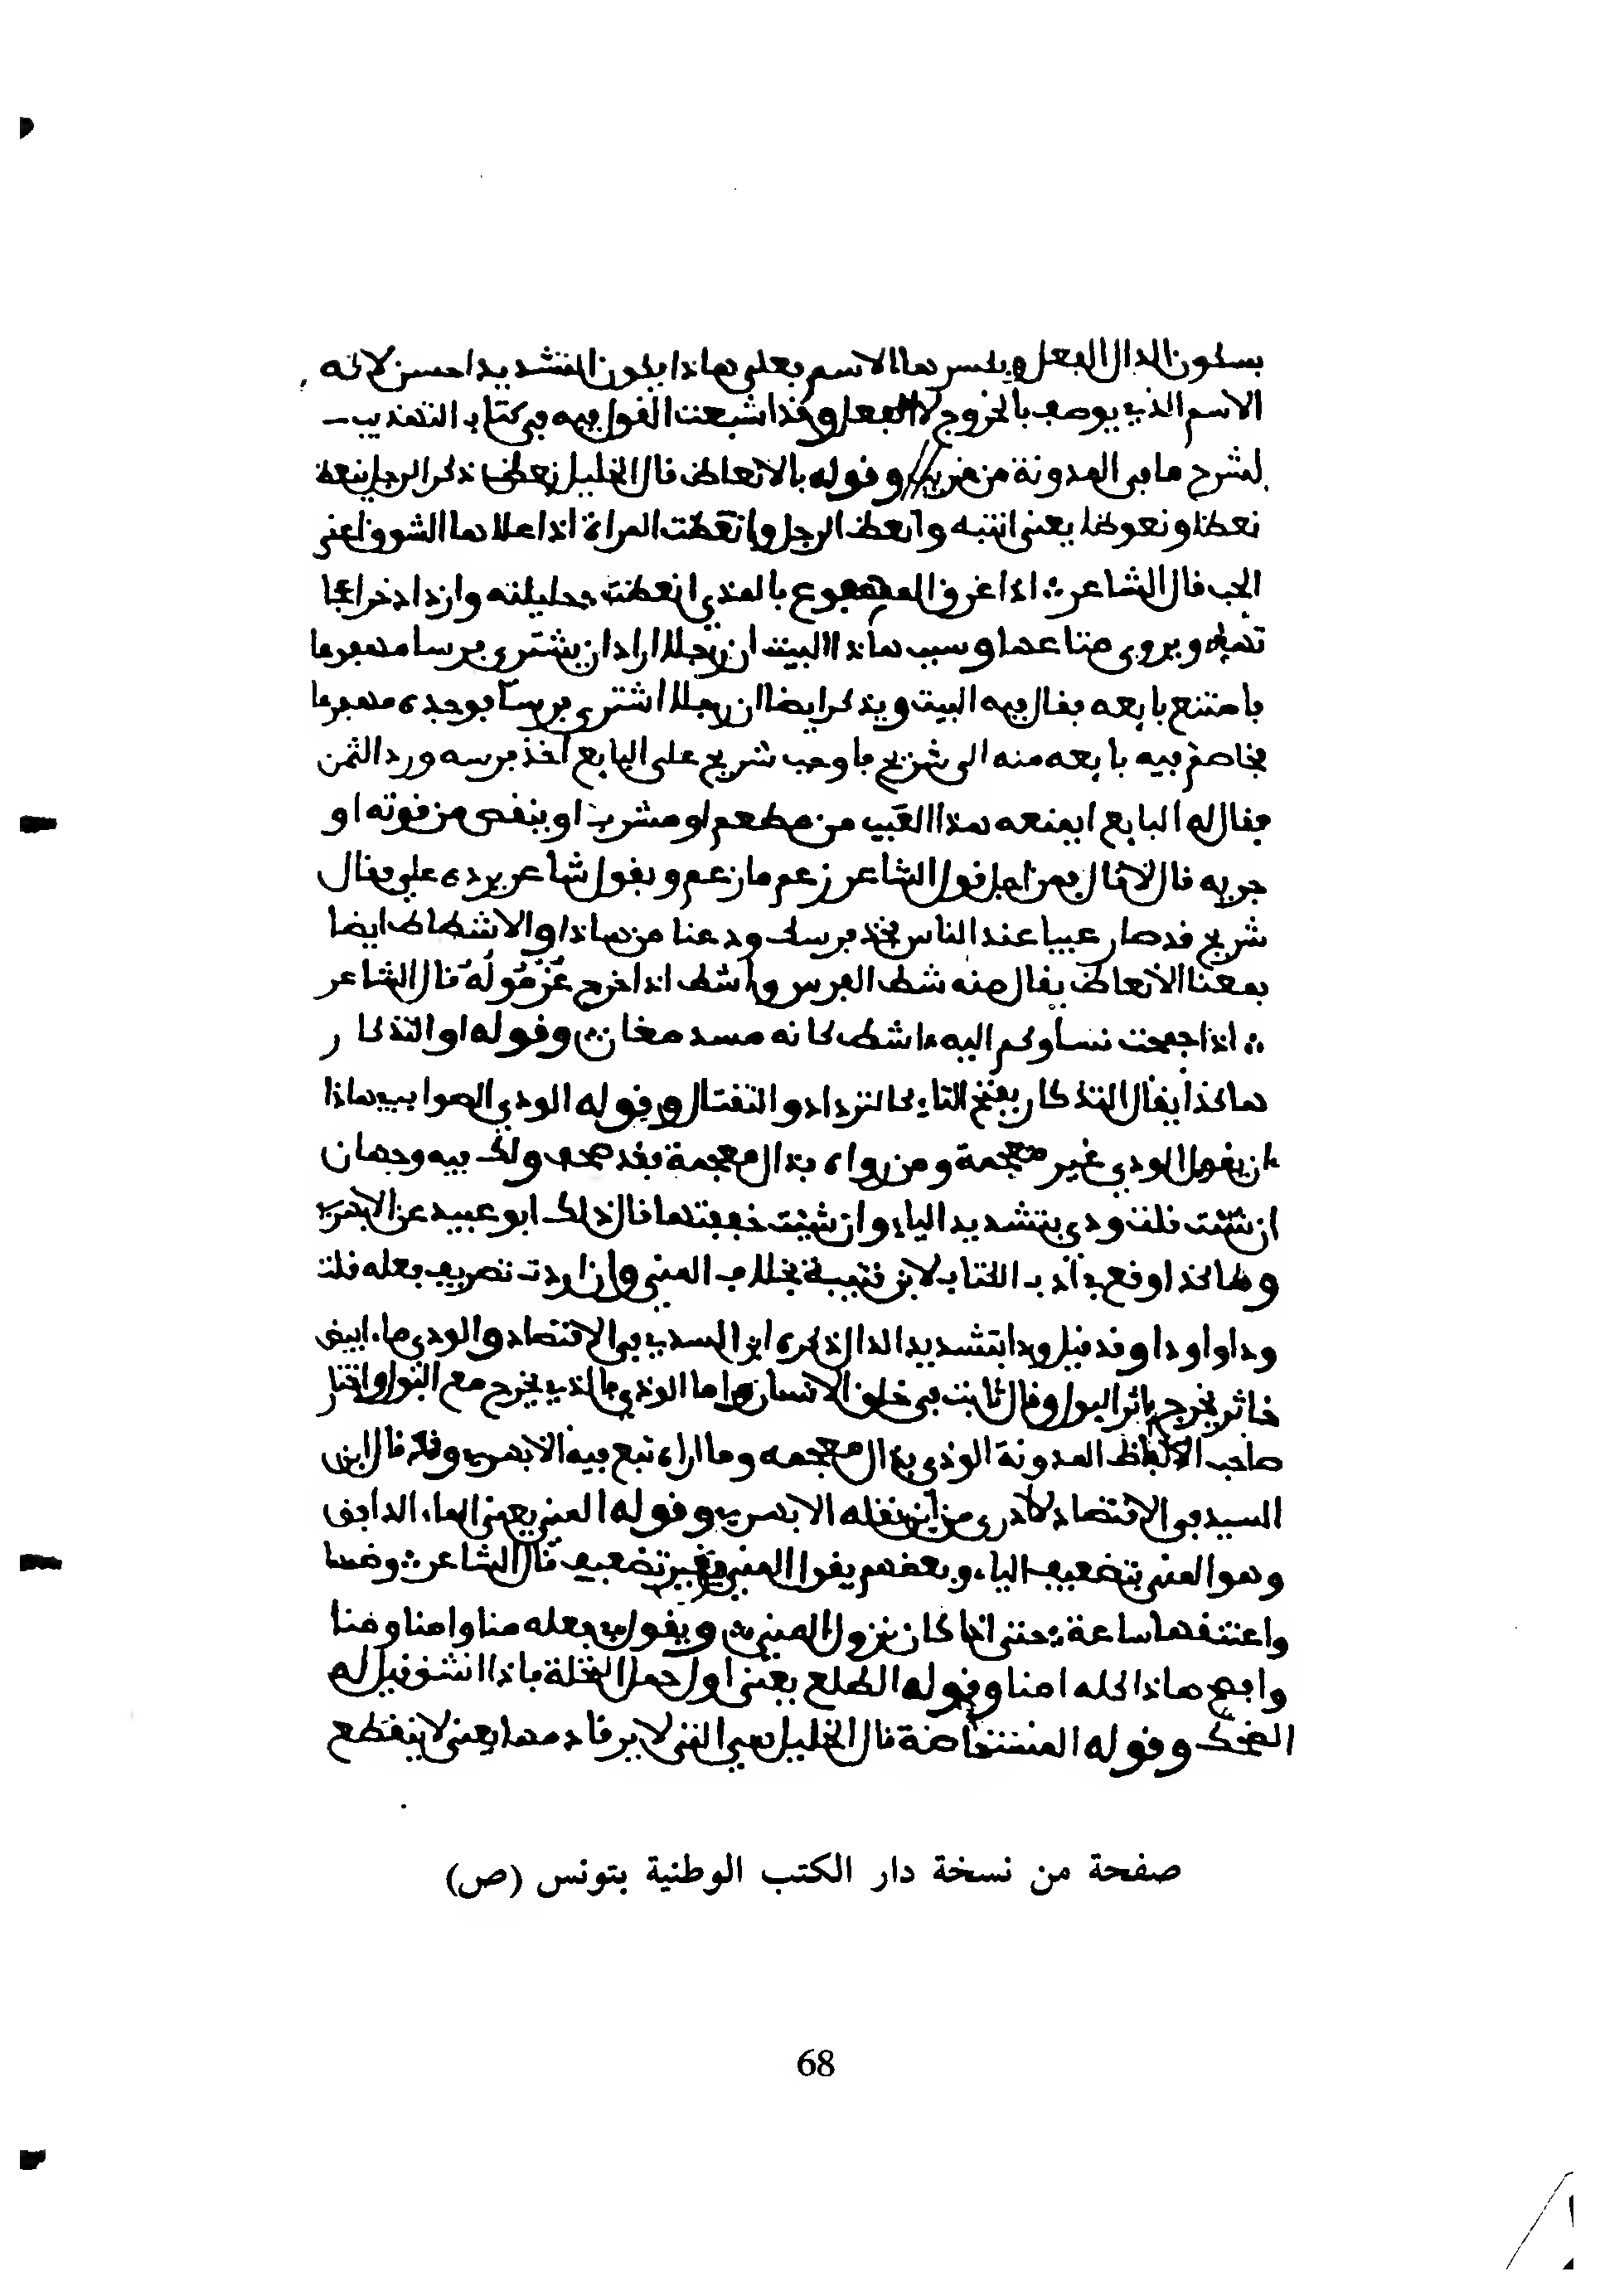 بسكون الدال الفعل وبكسرها الاسم فعلى هاذا يكون التشديد احسن لانه
الاسم الذي يوصف بالخروج لا الفعل وقد اشبعت القول فيه في كتاب التهذيب
لشرح ما في المدونة من غريب وقوله بالانعاظ قال الخليل نعظ ذكر الرجل ينعظ
نعظا ونعوظا يعنى انتبه وانعظ الرجل وانعظت المراة اذا علاهما الشوق اعني
الحب قال الشاعر اذا عرق المهقوع بالمذي انعظت حليلته وازداد حرا عجا
نها ويروى متاعها وسبب هاذا البيت ان رجلا اراد ان يشترى فرسا مهقوعا
فامتنع بايعه فقال فيه البيت ويذكر ايضا ان رجلا اشترى فرسا فوجده مهقوعا
فخاصم فيه بايعه منه الى شريح فاوجب شريح على البايع اخذ فرسه ورد الثمن
فقال له البايع ايمنعه هذا العيب من مطعم او مشرب او ينقص من قوته او
جريه قال لا قال فمن اجل قول الشاعر زعم ما زعم وبقول شاعر يرده علي فقال
شريح قد صار عيبا عند الناس فخذ فرسك ودعنا من هاذا والاشظاظ ايضا
بمعنا الانعاظ يقال منه شظ الفرس واشظ اذا اخرج غُرْمُولَهُ قال الشاعر
اذا جمحت نساوكم اليه اشظ كانه مسد مغار وقوله او التذكار
هاكذا يقال التذكار بفتح التاء كالترداد والتقتال وقوله الودي الصواب في هاذا
ان يقول الودي غير معجمة ومن رواه بذال معجمة فقد صحف ولك فيه وجهان
ان شئت قلت ودي بتشديد الياء وان شئت خففتها قال ذلك ابو عبيد عن الابهري
وهاكذا وقع في ادب الكتاب لابن قتيبة بخلاف المني وان اردت تصريف فعله قلت
ودا واودا وقد قيل ودا بتشديد الدال ذكره ابن السيد في الاقتضاب والودي ماء ابيض
خاثر يخرج باثر البول وقال ثابت في خلق الانسان واما الوذي فالذي يخرج مع البول واختار
صاحب الالفاظ المدونة الوذي بذال معجمه وما اراه تبع فيه الا الابهري وقد قال ابن
السيد في الاقتضاب لا ادري من اين نقله الابهري وقوله المني يعني الماء الدافق
وهو المني بتضعيف الياء وبعضهم يقول المني بغير تضعيف قال الشاعر وضمها
واعتنقها ساعة حتى اذا كان نزول المني ويقول في فعله منا وامنا ومنا
وافصح هاذا كله امنا وقوله الطلع يعنى اول حمل النخلة فاذا انشق قيل له
الضحك وقوله المستحاضة قال الخليل هي التي لا يرقا دمها يعنى لا ينقطع
صفحة من نسخة دار الكتب الوطنية بتونس (ص)
68